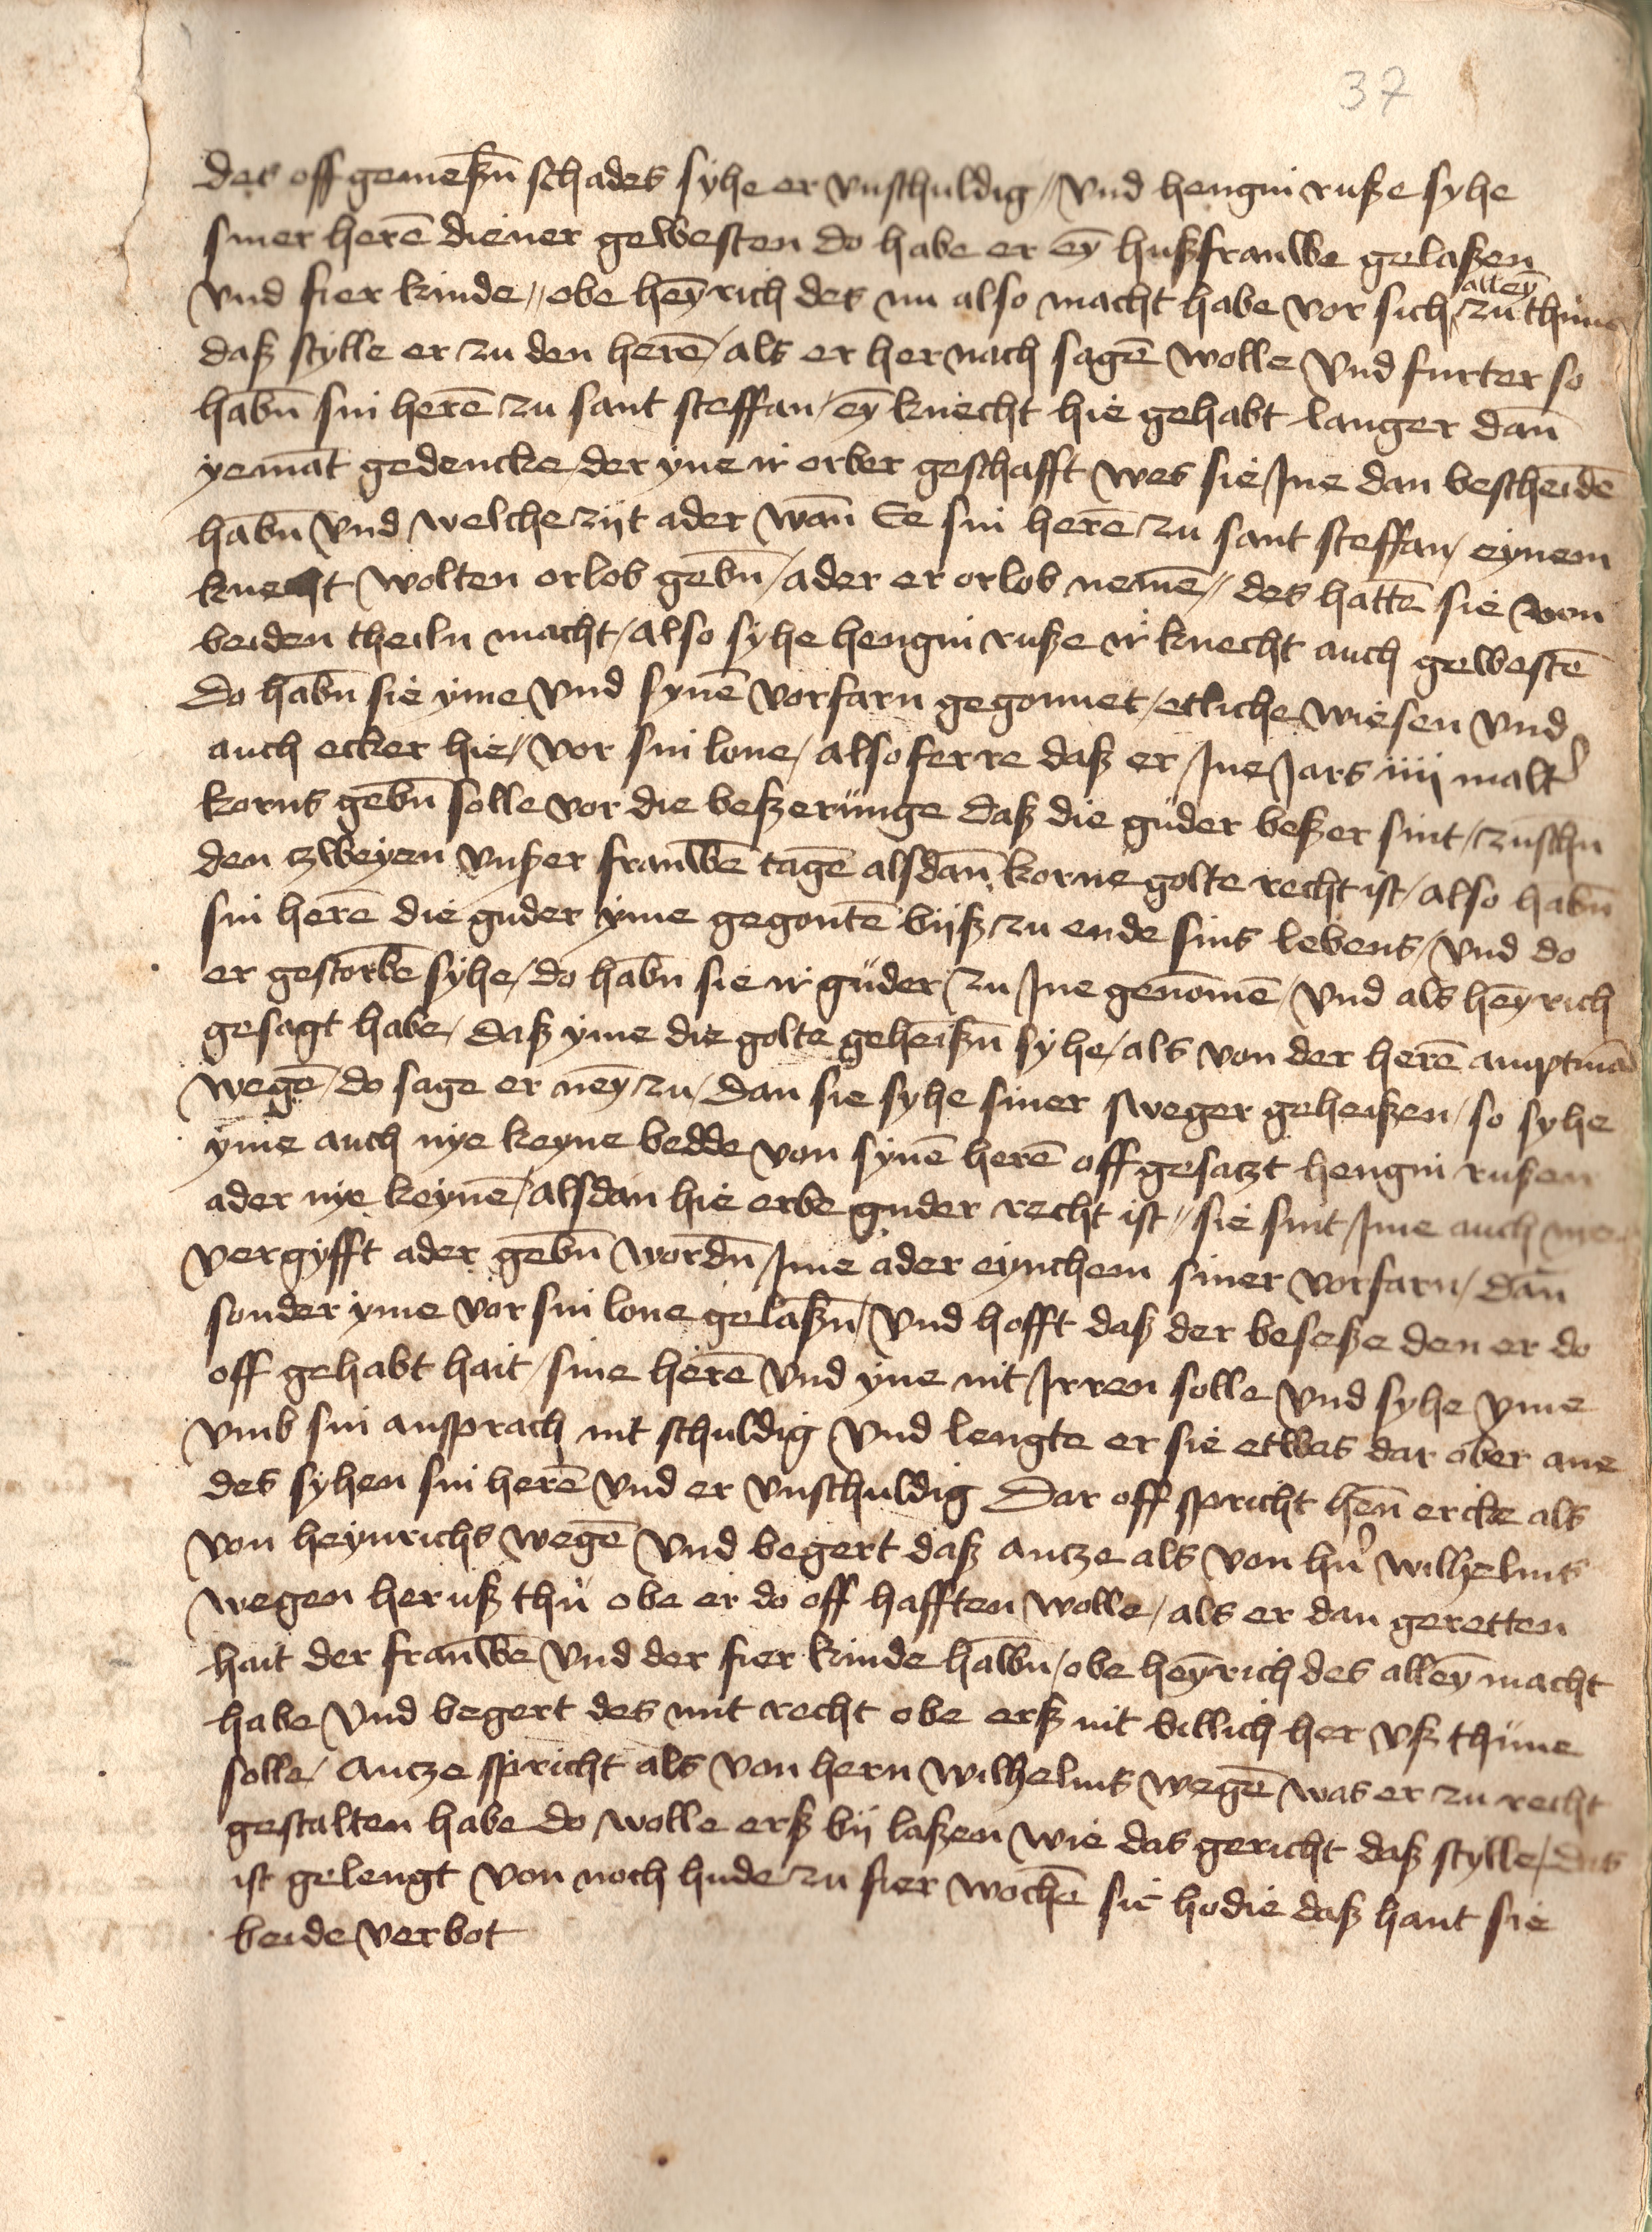 37
des offgemeßn̄ schades syhe er vnschuldig // vnd hengin ruße syhe
siner herē diener gewesten do habe er eȳ hußfrauwe gelaßen
vnd fier kinde // obe heȳrich des nu also macht habe vor sich alleȳ zu thune
daß stylle er zu den herē / als er her nach sagē wolle vnd furter so
habn̄ sin herē zu sant steffan / eȳ knecht hie gehabt langer dan̄
yemāt gedencke der yne ir orber geschafft wes sie Jne dan bescheidē
habn̄ vnd welche zijt ader wan̄ Ee sin herē zu sant steffan / eynem
knecht wolten orlob gebn̄ / ader er orlob nemē // des hattē sie von
beiden theiln macht / also syhe hengin ruße ir knecht auch gewestē
do habn̄ sie yme vnd synē vorfarn gegonnet / etliche wiesen vnd
auch ecker hie / vor sin lone / also ferre daß er Jne Jars iiij malt'
korns gebn̄ solle vor die beßerunge daß die guder beßer sint / zuschn
den zweyen vnßer frauwē tagē alsdan̄ korne golte recht ist / also habn̄
sin herē die guder yme gegontē bijß zu ende sins lebens / vnd do
er gestorbē syhe / do habn̄ sie ir guder zu Jne genomē / vnd als heȳrich
gesagt habe / daß yme die golte geheißn̄ syhe / als von der herē amptmā
wegē / do sage er neȳ zu / dan sie syhe siner sweger geheißen / so syhe
yme auch nye keyne bedde von synē herē offgesatzt hengin rußen
ader nye keynē / alsdan hie erbe guder recht ist // sie sint Jme auch nye
vergyfft ader gebn̄ wordn̄ Jme ader eynchem siner vorfarn / dan̄
sonder yme vor sin lone gelaßn̄ / vnd hofft daß der beseße den er do
off gehabt hait / sine herē vnd yne nit Jrren solle vnd syhe yme
vmb sin ansprach nit schuldig vnd lengte er sie etwas dar ober ane
des syhen sin herē vnd er vnschuldig Dar off spricht hen̄ ercke als
von heynrichs wegē vnd begert daß antze als von hn̄ wilhelms
wegen heruß thu obe er do off hafften wolle / als er dan geretten
hait der frauwē vnd der fier kinde halbn̄ / obe heȳrich des alleȳ macht
habe vnd begert des mit recht obe erß nit billich her vß thune
solle / antze spricht als von hern wilhelms wegē was er zu recht
gestalten habe do wolle erß bij laßen wie das gericht daß stylle / das
ist gelengt von noch hude zu fier wochē sic hodie daß hant sie
beide verbot